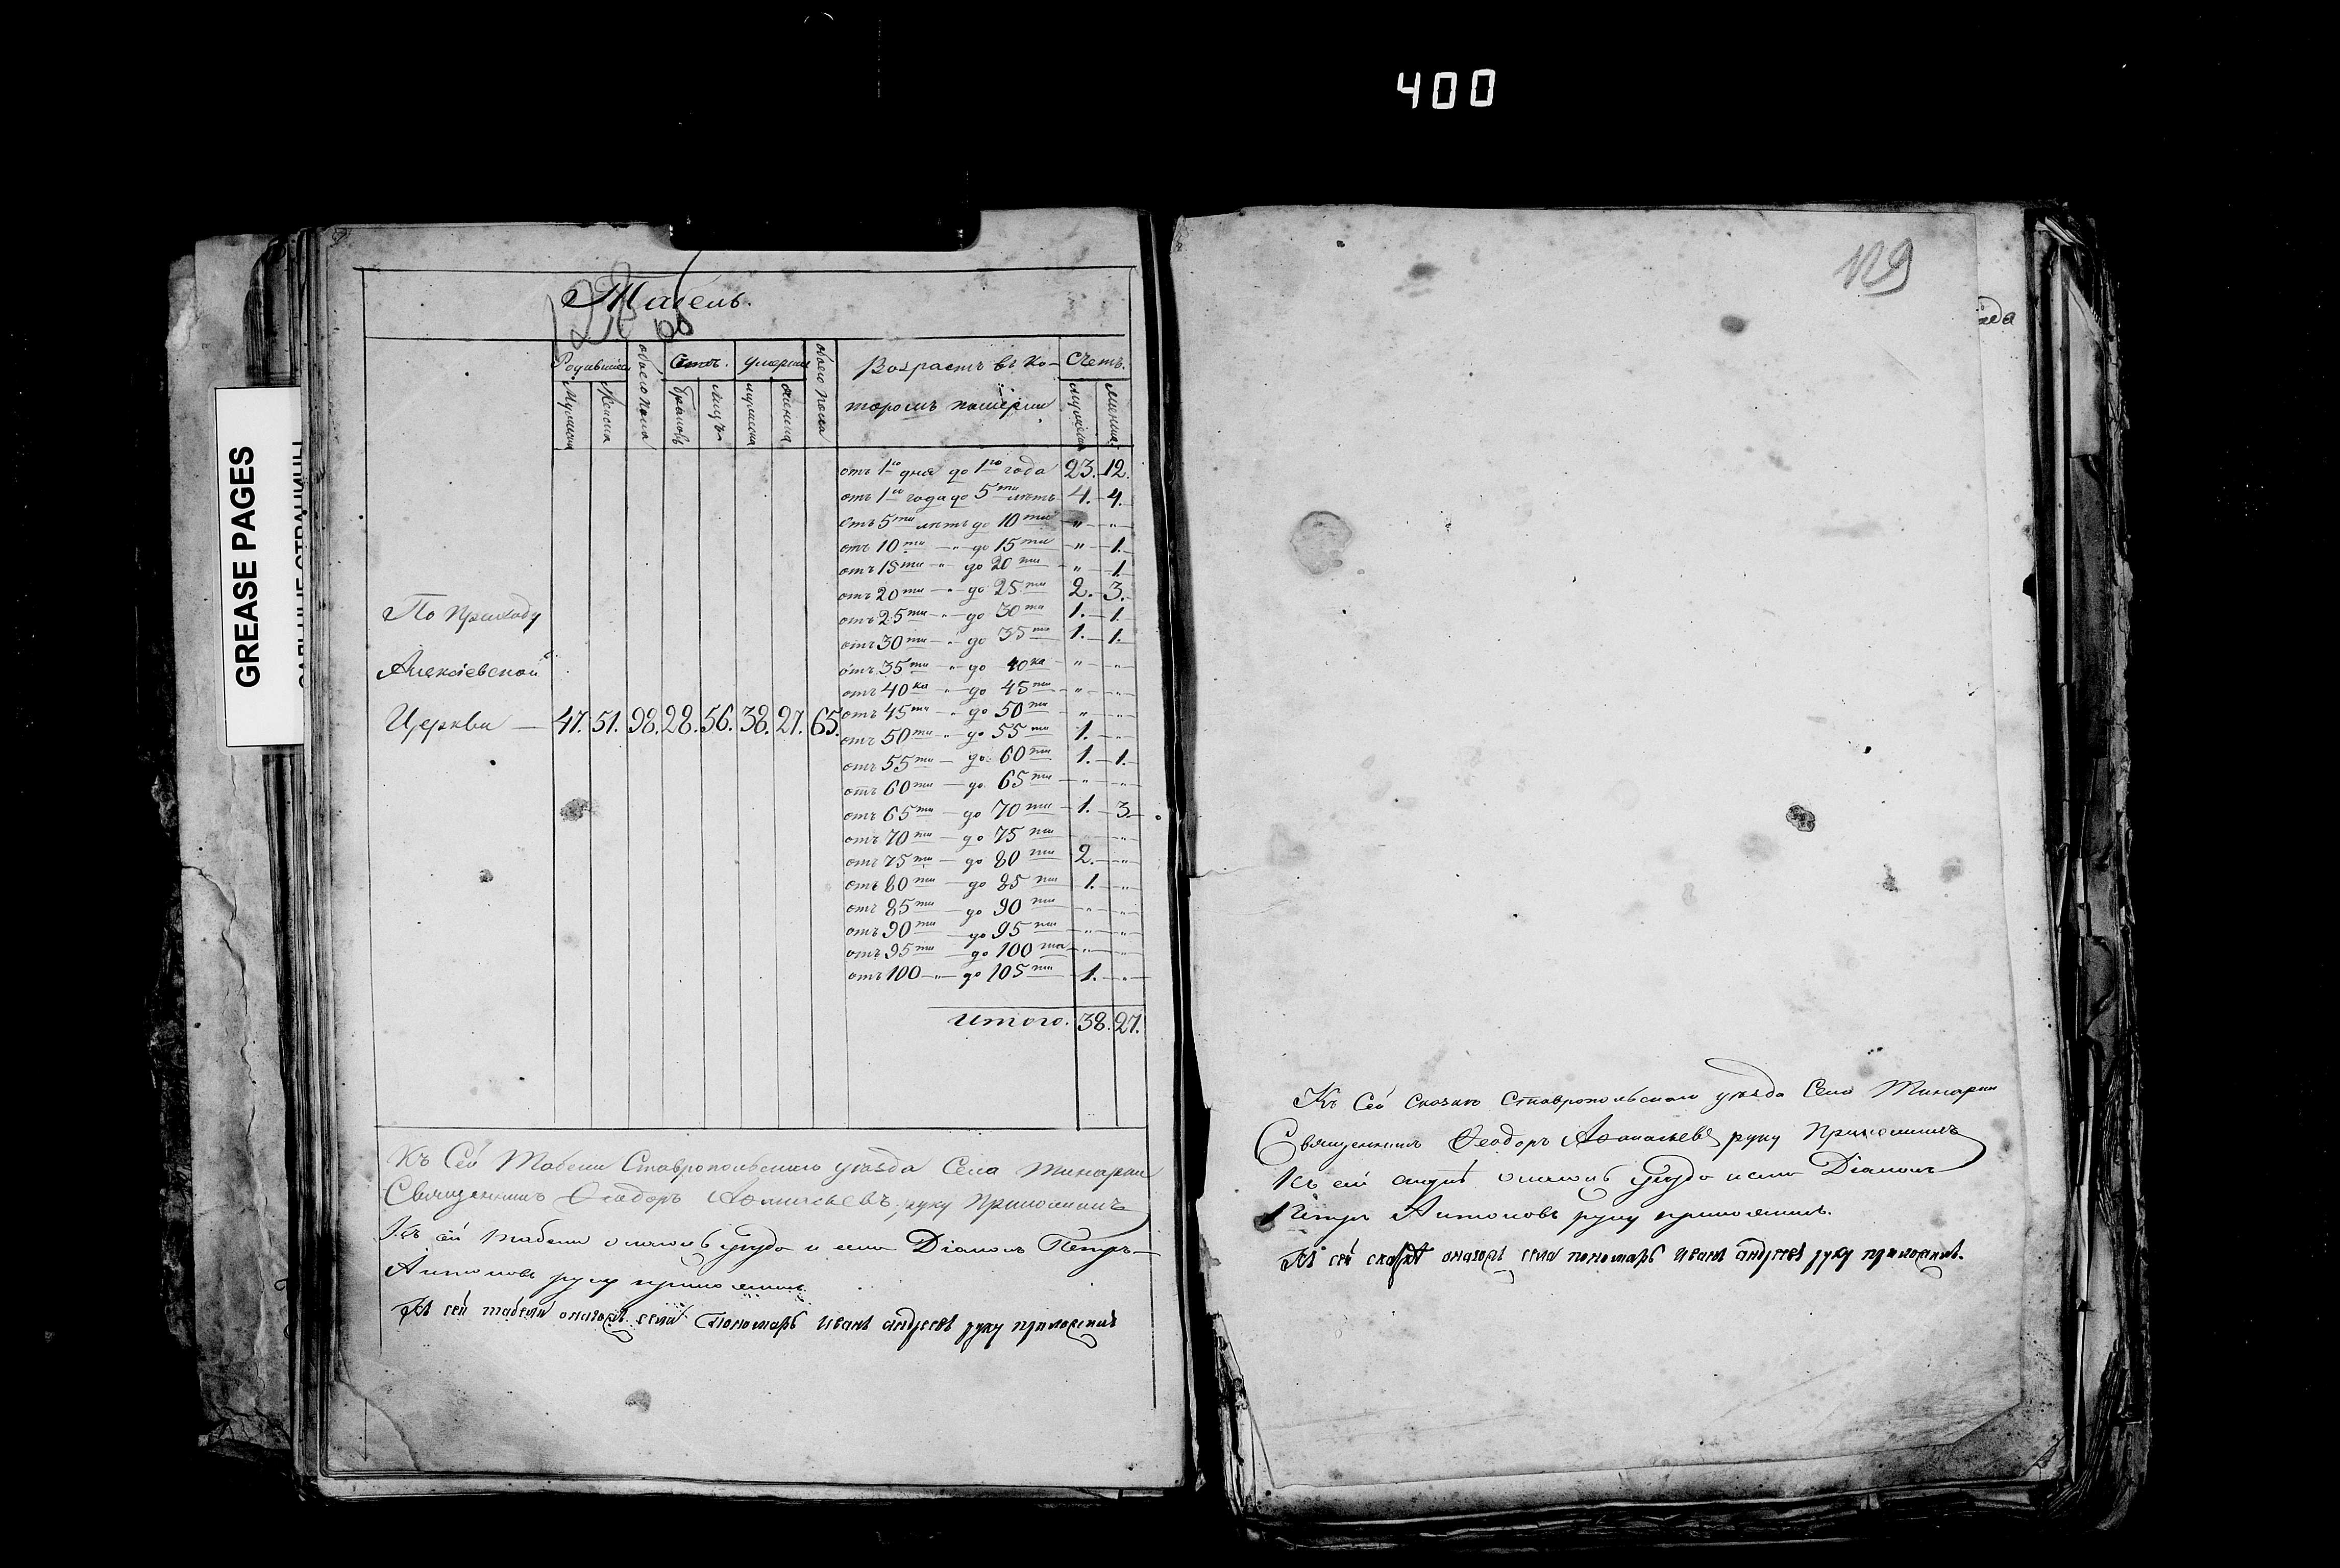 400
GREASE PAGES
Табель.
Родившіеся
обоего пола
умершие
обоего пола
Возрастъ въ ко-
торомъ померли
Счетъ.
Мужеска
Женска
браковъ
лицъ
мужеска
женска
мужеска
женска
отъ 1го дня до 1го года 23. 12.
отъ 1го года до 5ти лѣтъ 4. 4.
отъ 5ти лѣтъ до 10ти " "
отъ 10ти " до 15ти " 1.
отъ 15ти " до 20ти " 1.
отъ 20ти " до 25ти 2. 3.
отъ 25ти " до 30ти 1. 1.
отъ 30ти " до 35ти 1. 1.
отъ 35ти " до 40ка " "
отъ 40ка " до 45ти " "
отъ 45ти " до 50ти " "
отъ 50ти " до 55ти 1. "
отъ 55ти до 60ти 1. 1.
отъ 60ти до 65ти " "
отъ 65ти до 70ти 1. 3.
отъ 70ти до 75ти "
отъ 75ти до 80ти 2. "
отъ 80ти до 85ти 1. "
отъ 85ти до 90ти " "
отъ 90ти до 95ти " "
отъ 95ти до 100та " "
отъ 100 " до 105ти 1. "
По приходу
Алексіевской
Церкви — 47. 51. 98. 28. 56. 38. 27. 65.
Итого. 38. 27.
Къ Сей Табели Ставропольскаго уѣзда Села
Священникъ Феодоръ руку приложилъ
Къ сей табели села Діаконъ Петръ
Антоновъ руку приложилъ
Къ сей табели оногожъ села Пономарь Иванъ андреевъ руку приложилъ
129
Къ Сей Ставропольскаго уѣзда Села
Священникъ Феодоръ руку приложилъ
Къ сей села Діаконъ
Петръ Антоновъ руку приложилъ.
Къ сей оногожъ села пономарь Иванъ андреевъ руку приложилъ.